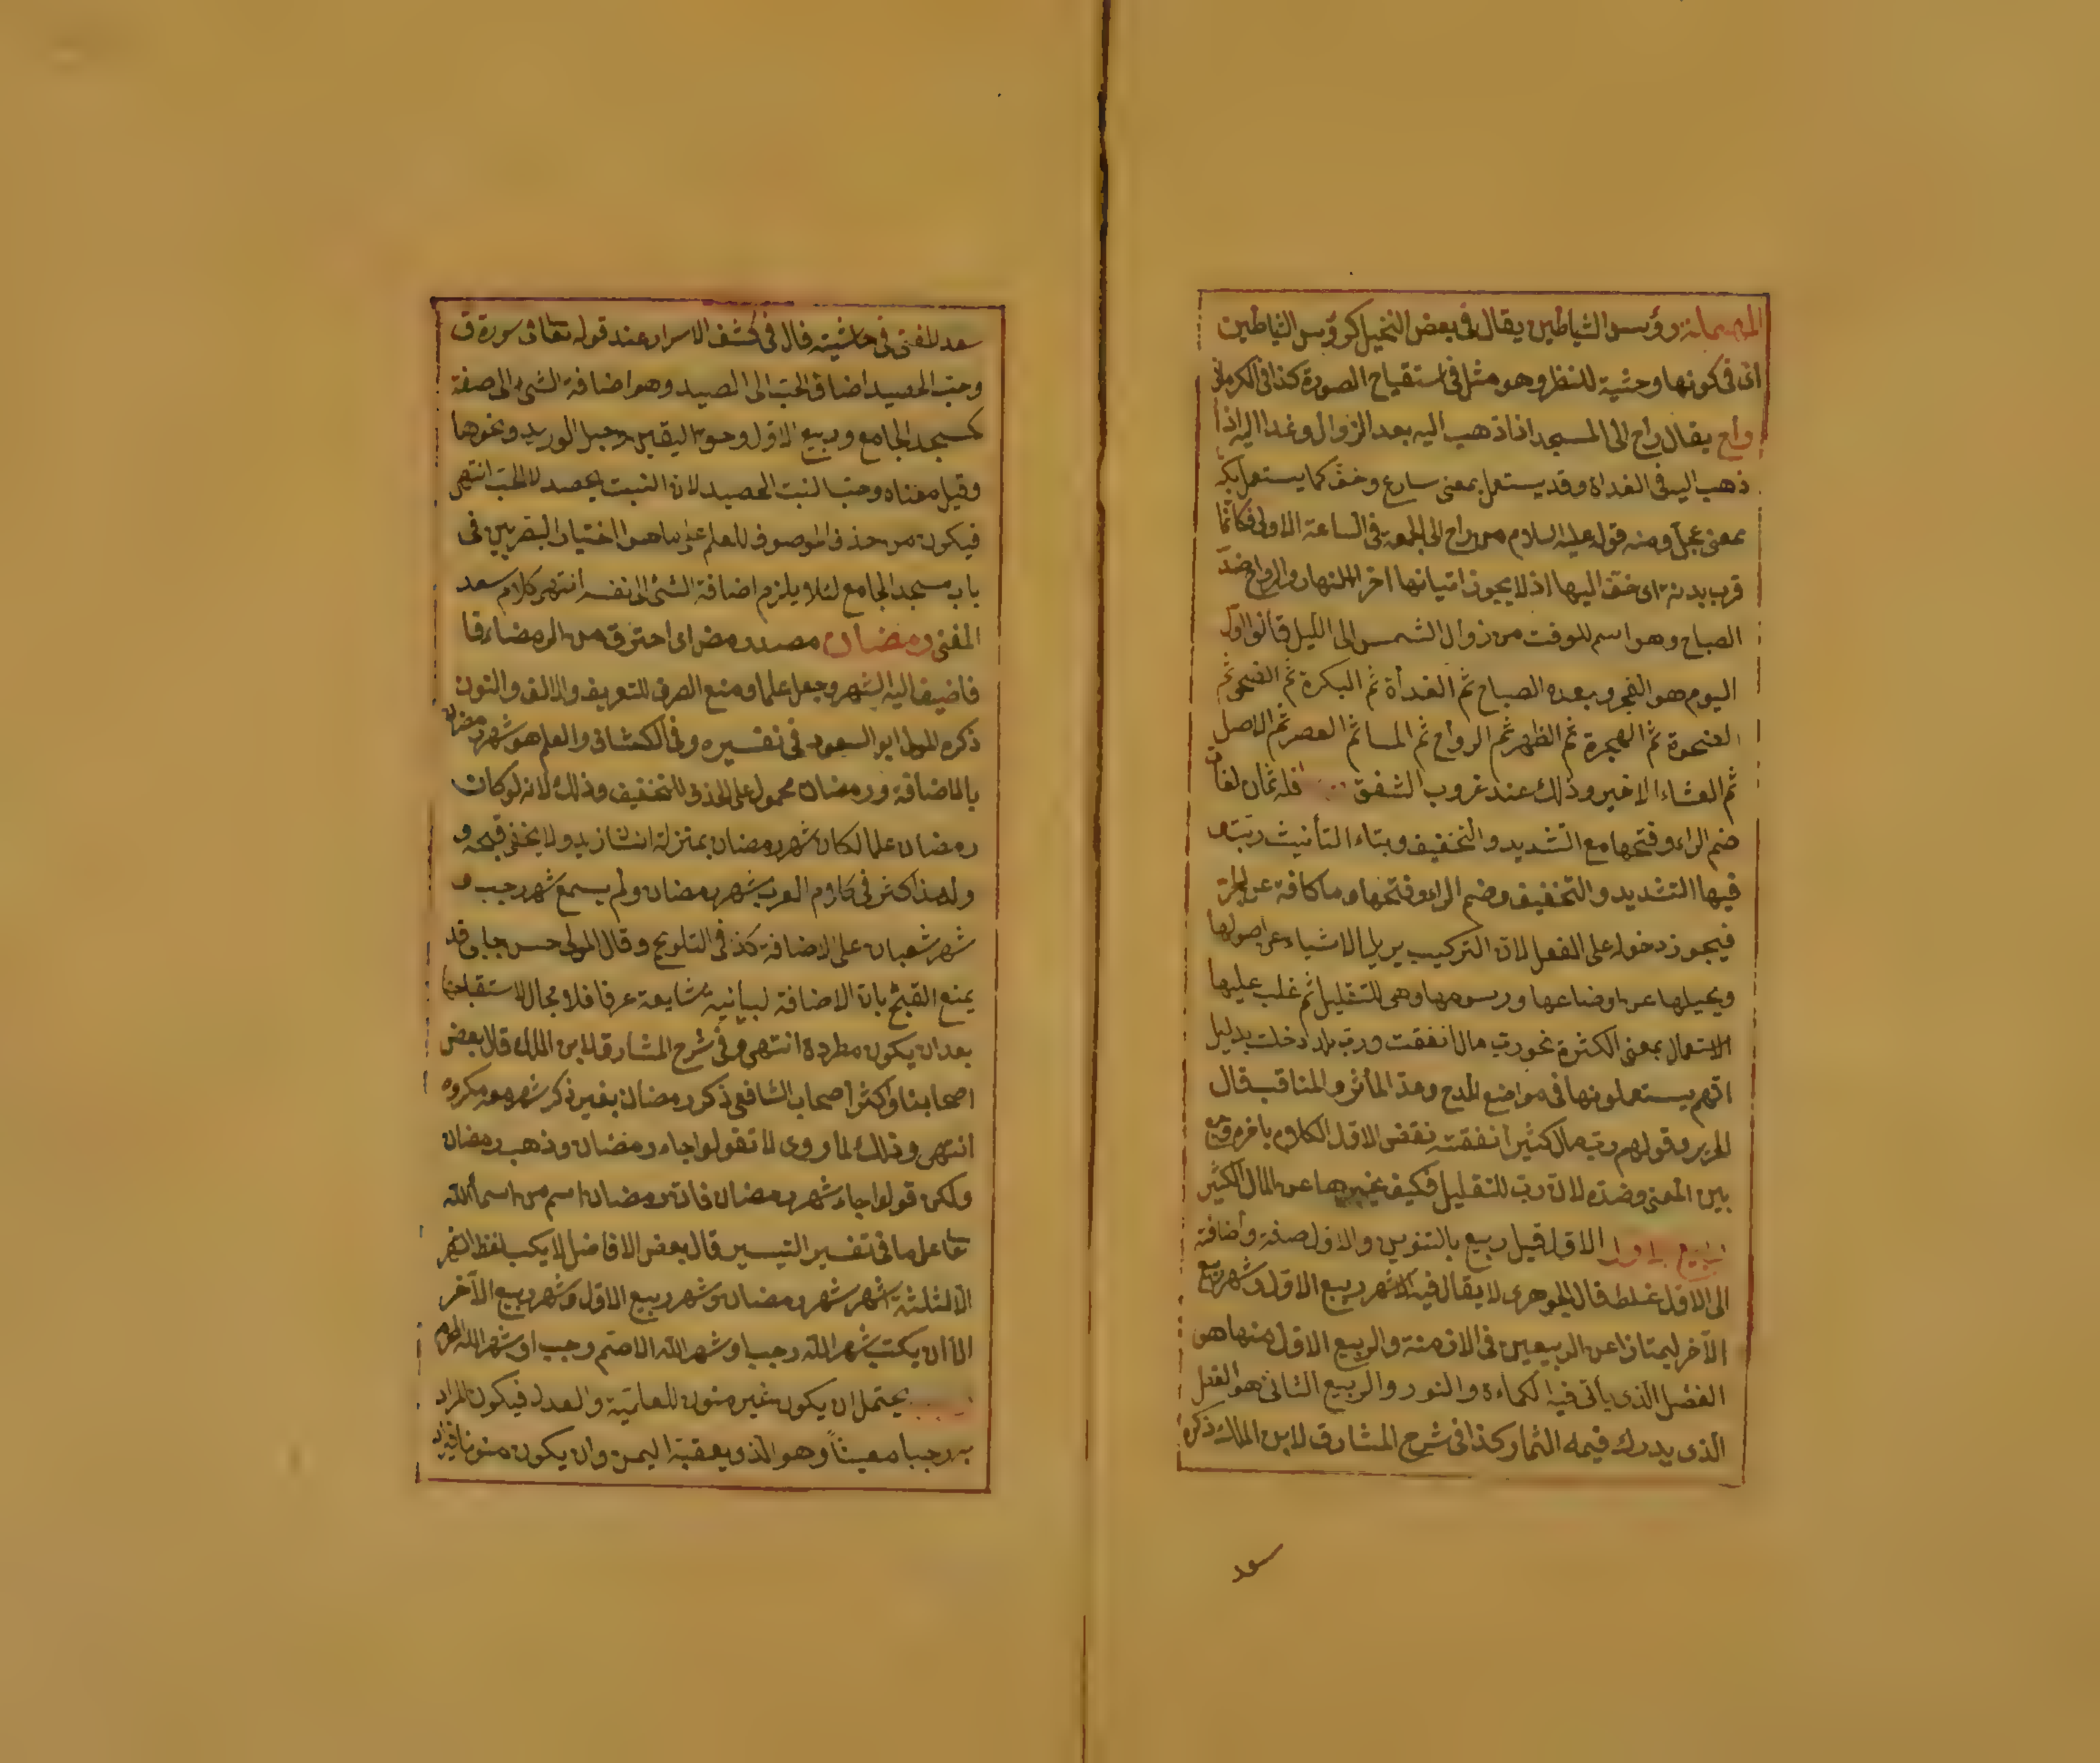 رؤس الشياطين يقال فى بعض النخيل كرؤس الشياطين
اى فى كونها وحشية للنظر وهو مثل فى استقباح الصورة كذا فى الكرمانى
راح يقال راح الى المسجد اذا ذهب اليه بعد الزوال وغدا اليه اذا
ذهب اليه فى الغداة وقد يستعمل بمعنى سارع وخف كما يستعمل بكر
بمعنى عجل ومنه قوله عليه السلام من راح الى الجمعة فى الساعة الاولى فكانما
قرب بدنة اى خف اليها اذ لا يجوز اتيانها اخر النهار والرواح ضد
الصباح وهو اسم للوقت من زوال الشمس الى الليل قالوا اول
اليوم هو الفجر وبعده الصباح ثم الغداة ثم البكرة ثم الضحى ثم
الضحوة ثم الهجرة ثم الظهر ثم الرواح ثم المسا ثم العصر ثم الاصل
ثم العشاء الاخير وذلك عند غروب الشفق فله ثمان لغات
ضم الراء وفتحها مع التشديد والتخفيف وبتاء التأنيث ربت و
فيها التشديد والتخفيف وضم الراء وفتحها وما كافة عن الجر
فيجوز دخوله على الفعل لان التركيب يزيل الاشياء عن اصولها
ويحيلها عن اوضاعها ورسومها وهى للتقليل ثم غلب عليها
الاستعمال بمعنى الكثرة نحو رب مال انفقت ورب بلد دخلت بدليل
انهم يستعملونها فى مواضع المدح وعد المأثر والمناقب قال
الحرير وقولهم رب مال كثير انفقته نقض الاول الكلام باخره
بين المعنى وضده لان رب للتقليل فكيف يخبر بها عن المال الكثير
ربيع الاول الاول قيل ربيع بالتنوين والاول صفة واضافة
الى الاول غلط قال الجوهرى لا يقال فيه الا شهر ربيع الاول وشهر ربيع
الآخر ليمتازا عن الربيعين فى الازمنة والربيع الاول منها هو
الفصل الذى يأتى فيه الكماءة والنور والربيع الثانى هو الفصل
الذى يدرك فيه الثمار وكذا فى شرح المشارق لابن الملك ذكره
سعد
سعد المفتى فى حاشيته قال فى كشف الاسرار عند قوله تعالى فى سورة ق
وحب الحصيد اضاف الحب الى الحصيد وهو اضافة الشئ الى صفة
كمسجد الجامع وربيع الاول وحق اليقين وحبل الوريد ونحوها
وقيل معناه وحب النبت الحصيد لان النبت يحصد لا الحب انتهى
فيكون من حذف الموصوف للعلم على ما هو اختيار البصريين فى
باب مسجد الجامع لئلا يلزم اضافة الشئ الى نفسه انتهى كلام سعد
المفتى رمضان مصدر رمض اى احترق من الرمضاء
فاضيف اليه الشهر وجعل علما ومنع الصرف للتعريف والالف والنون
ذكره المولى ابو السعود فى تفسيره وفى الكشاف والعلم هو شهر رمضان
بالاضافة ورمضان محمول على الحذف للتخفيف وذلك لانه لو كان
رمضان علما لكان شهر رمضان بمنزلة انسان زيد ولا يخفى قبحه و
ولهذا كثر فى كلام العرب شهر رمضان ولم يسمع شهر رجب و
شهر شعبان على الاضافة كذا فى التلويح وقال المولى حسن جلبى قد
يمنع القبح بان الاضافة البيانية شايعة عرفا فلا مجال لاستقباحها
بعد ان يكون مطردة انتهى وفى شرح المشارق لابن الملك قال بعض
اصحابنا واكثر اصحاب الشافعى ذكر رمضان بغير ذكر شهر معه مكروه
انتهى وذلك لما روى لا تقولوا جاء رمضان وذهب رمضان
ولكن قولوا جاء شهر رمضان فان رمضان اسم من اسماء الله
تعا على ما فى تفسير التيسير قال بعض الافاضل لا يكتب لفظ الشهر
الا لثلثة اشهر شهر رمضان وشهر ربيع الاول وشهر ربيع الآخر
الا ان يكتب شهر الله رجب او شهر الله الاصم رجب او شهر الله المحرم
يحتمل ان يكون غير منون للعلمية والعدل فيكون المراد
به رجبا معينا وهو الذى يعقبة اليمن وان يكون منونا